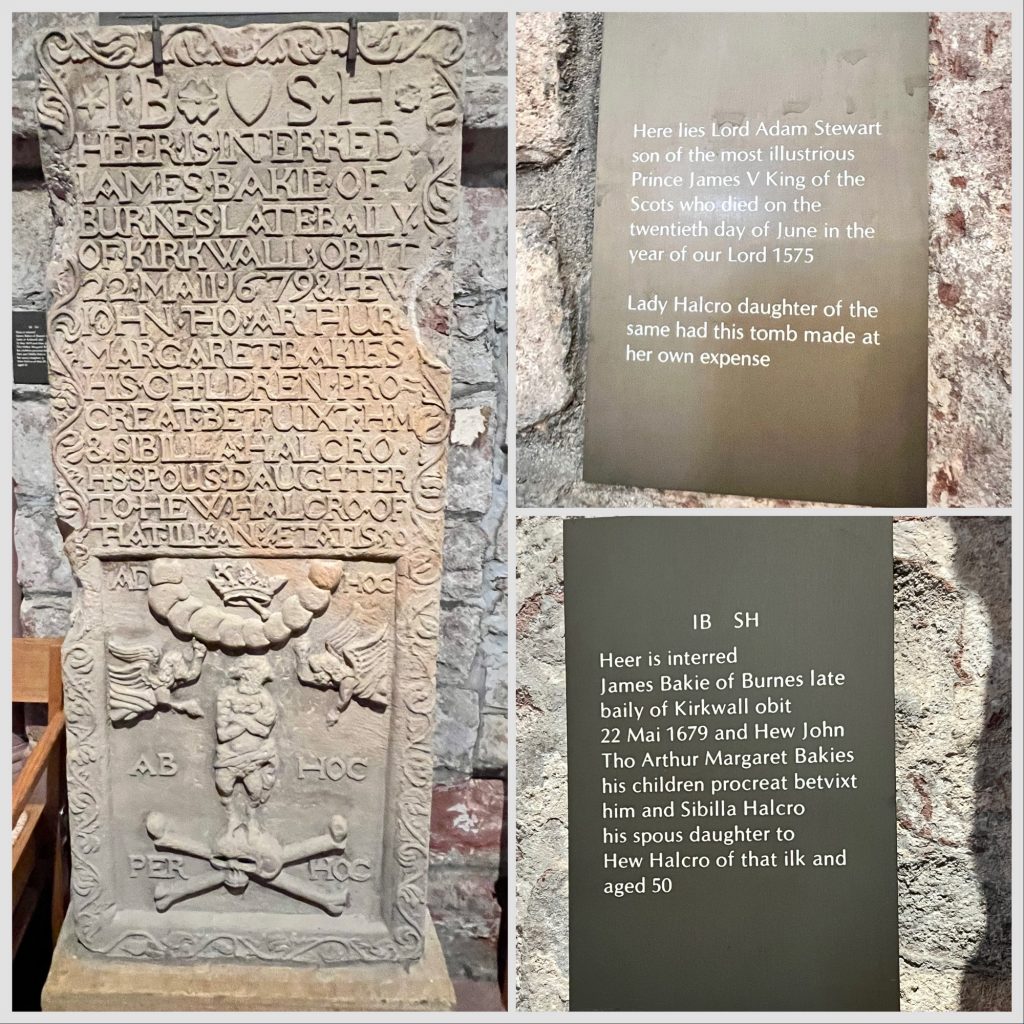 I·B S·H
HEER·IS·INTERRED
IAMES·BAKIE·OF
BURNES·LATE·BAILY·
OF·KIRKWALL·OBIIT
22·MAII·1679&HEV
IOHN·THO·ARTHUR
MARGARET·BAKIES
HIS·CHILDREN·PRO
CREAT·BETUIXT·HM
&·SIBILLA·HALCRO·
HS·SPOUS·DAUGHTER
TO·HEW·HALCRO·OF
THAT·ILK·AN·ÆTATIS·50
AD HOC
AB HOC
PER HOC
Here lies Lord Adam Stewart
son of the most illustrious
Prince James V King of the
Scots who died on the
twentieth day of June in the
year of our Lord 1575
Lady Halcro daughter of the
same had this tomb made at
her own expense
IB SH
Heer is interred
James Bakie of Burnes late
baily of Kirkwall obit
22 Mai 1679 and Hew John
Tho Arthur Margaret Bakies
his children procreat betvixt
him and Sibilla Halcro
his spous daughter to
Hew Halcro of that ilk and
aged 50